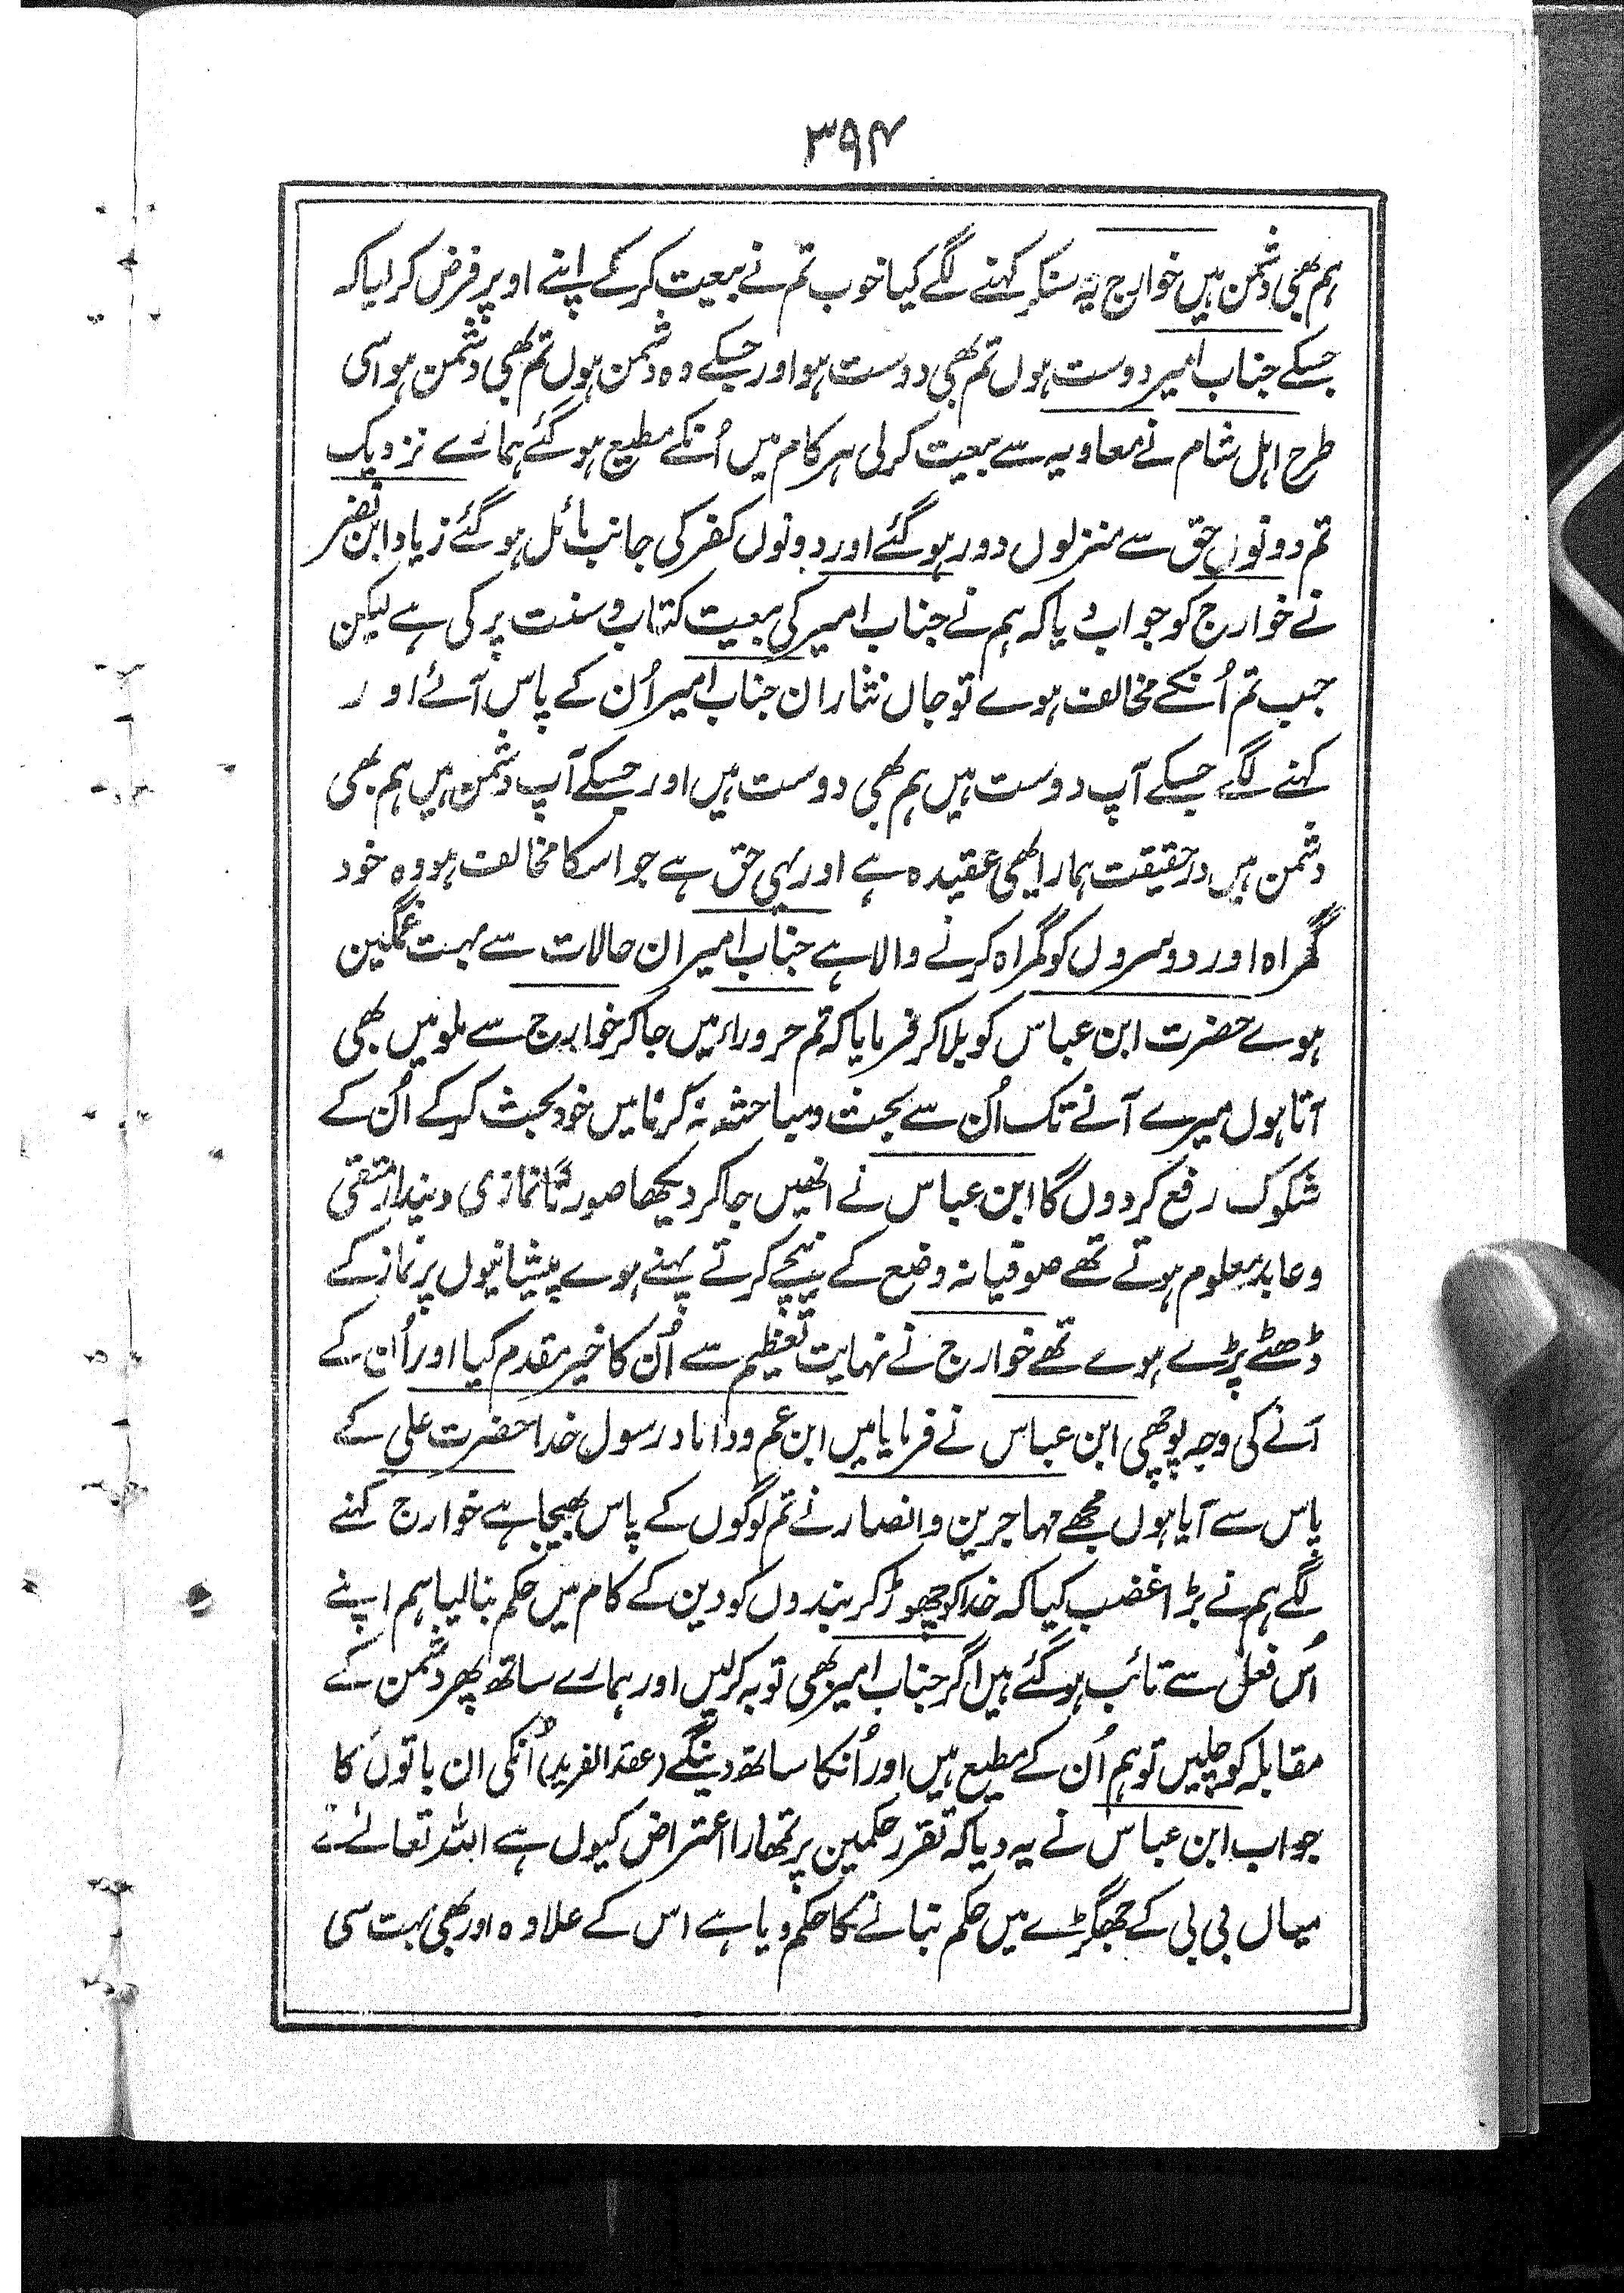 ۳۹۴
ہم بھی دشمن ہیں خوارج یہ سنکر کہنے لگے کیا خوب تم نے بیعت کرکے اپنے اوپر فرض کرلیا کہ
جسکے جناب امیر دوست ہوں تم بھی دوست ہو اور جسکے وہ دشمن ہوں تم بھی دشمن ہو اسی
طرح اہل شام نے معاویہ سے بیعت کرلی ہر کام میں اُنکے مطیع ہوگئے ہمارے نزدیک
تم دونوں حق سے منزلوں دور ہوگئے اور دونوں کفر کی جانب مائل ہوگئے زیاد ابن نضر
نے خوارج کو جواب دیا کہ ہم نے جناب امیر کی بیعت کتاب و سنت پر کی ہے لیکن
جب تم اُنکے مخالف ہوے تو جاں نثاران جناب امیر اُن کے پاس آئے اور
کہنے لگے جسکے آپ دوست ہیں ہم بھی دوست ہیں اور جسکے آپ دشمن ہیں ہم بھی
دشمن ہیں درحقیقت ہمارا یہی عقیدہ ہے اور یہی حق ہے جو اسکا مخالف ہو وہ خود
گمراہ اور دوسروں کو گمراہ کرنے والا ہے جناب امیر ان حالات سے بہت غمگین
ہوے حضرت ابن عباس کو بلا کر فرمایا کہ تم حروراء میں جا کر خوارج سے ملو میں بھی
آتا ہوں میرے آنے تک اُن سے بحث و مباحثہ نہ کرنا میں خود بحث کرکے اُن کے
شکوک رفع کردوں گا ابن عباس نے انھیں جا کر دیکھا صورتًا نمازی دیندار متقی
و عابد معلوم ہوتے تھے صوفیانہ وضع کے نیچے کرتے پہنے ہوے پیشانیوں پر نماز کے
ڈھٹے پڑے ہوے تھے خوارج نے نہایت تعظیم سے اُن کا خیر مقدم کیا اور اُن کے
آنے کی وجہ پوچھی ابن عباس نے فرمایا میں ابن عم و داماد رسول خدا حضرت علی کے
پاس سے آیا ہوں مجھے مہاجرین و انصار نے تم لوگوں کے پاس بھیجا ہے خوارج کہنے
لگے ہم نے بڑا غضب کیا کہ خدا کو چھوڑ کر بندوں کو دین کے کام میں حکم بنا لیا ہم اپنے
اُس فعل سے تائب ہوگئے ہیں اگر جناب امیر بھی توبہ کرلیں اور ہمارے ساتھ پھر دشمن کے
مقابلہ کو چلیں تو ہم اُن کے مطیع ہیں اور اُنکا ساتھ دینگے (عقد الفرید) اُنکی ان باتوں کا
جواب ابن عباس نے یہ دیا کہ تقرر حکمین پر تمھارا اعتراض کیوں ہے اللہ تعالےٰ نے
میاں بی بی کے جھگڑے میں حکم بنانے کا حکم دیا ہے اس کے علاوہ اور بھی بہت سی